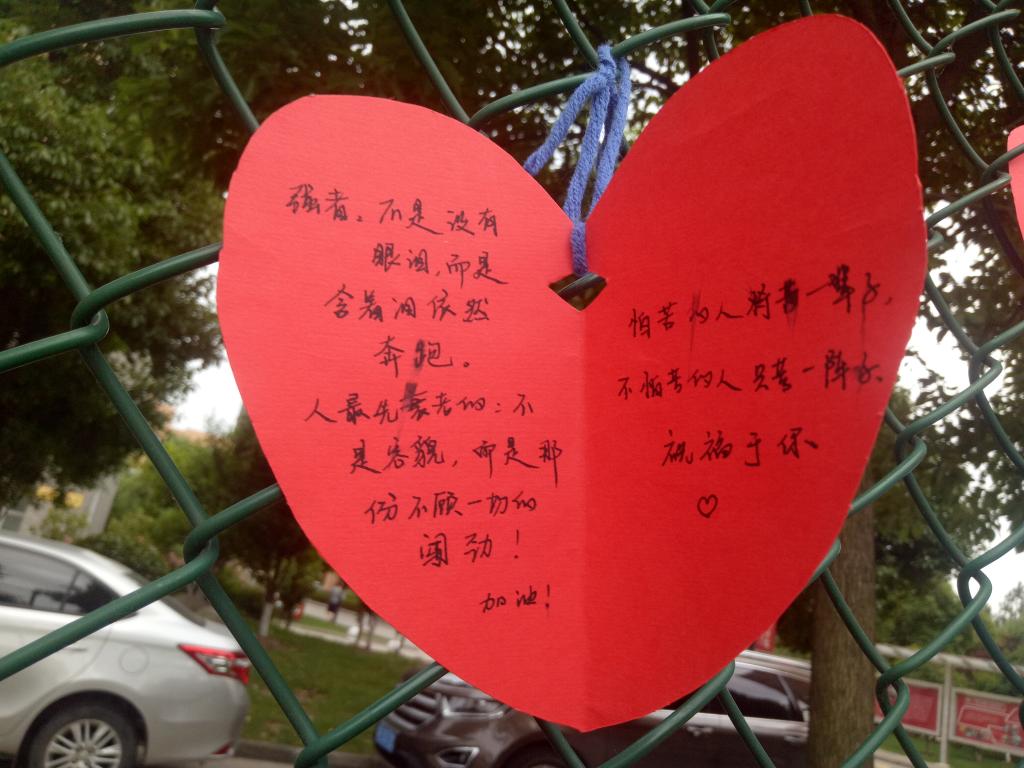 强者。不是没有
眼泪,而是
含着泪依然
奔跑。
人最先衰老的:不
是容貌,而是那
份不顾一切的
闯劲!
加油!
怕苦的人将苦一辈子,
不怕苦的人只苦一阵子。
祝福于你、